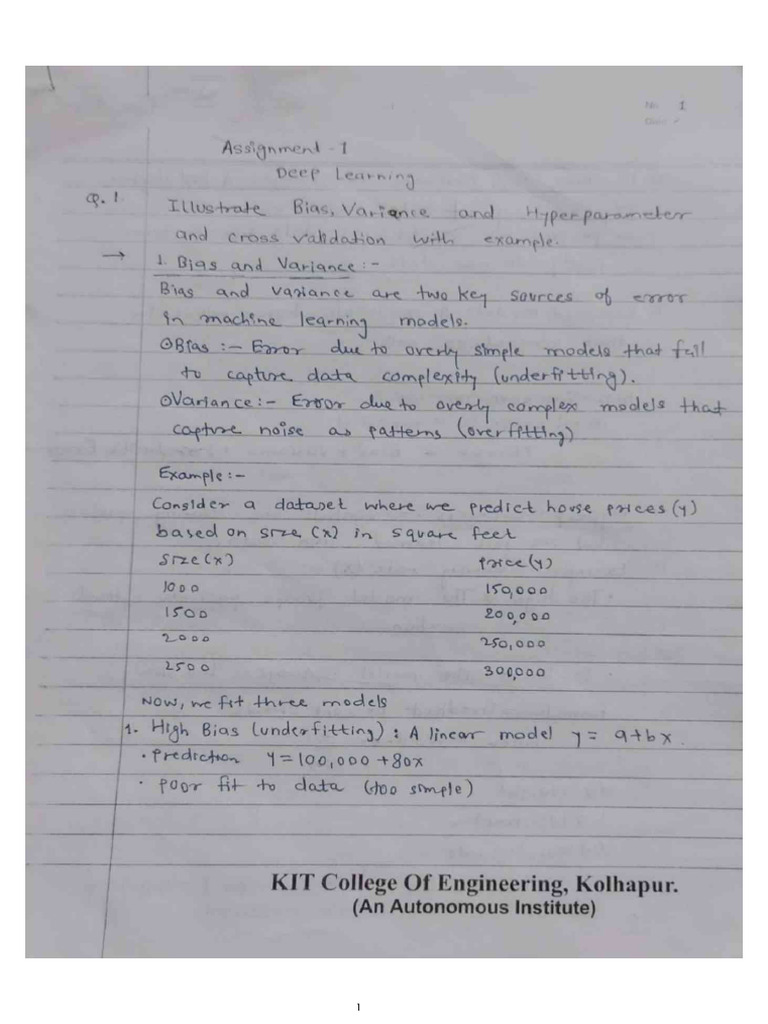 No. 1
Assignment-1
Deep Learning
Q.1 Illustrate Bias, Variance and Hyperparameter
and cross validation with example.
→ 1. Bias and Variance :-
Bias and variance are two key sources of error
in machine learning models.
⊙Bias :- Error due to overly simple models that fail
to capture data complexity (underfitting).
⊙Variance:- Error due to overly complex models that
capture noise as patterns (overfitting)
Example :-
Consider a dataset where we predict house prices (y)
based on size (x) in square feet
Size (x) Price (y)
1000 150,000
1500 200,000
2000 250,000
2500 300,000
Now, we fit three models
1. High Bias (underfitting) : A linear model y = a+bx.
• Prediction y=100,000+80x
• poor fit to data (too simple)
KIT College Of Engineering, Kolhapur.
(An Autonomous Institute)
1